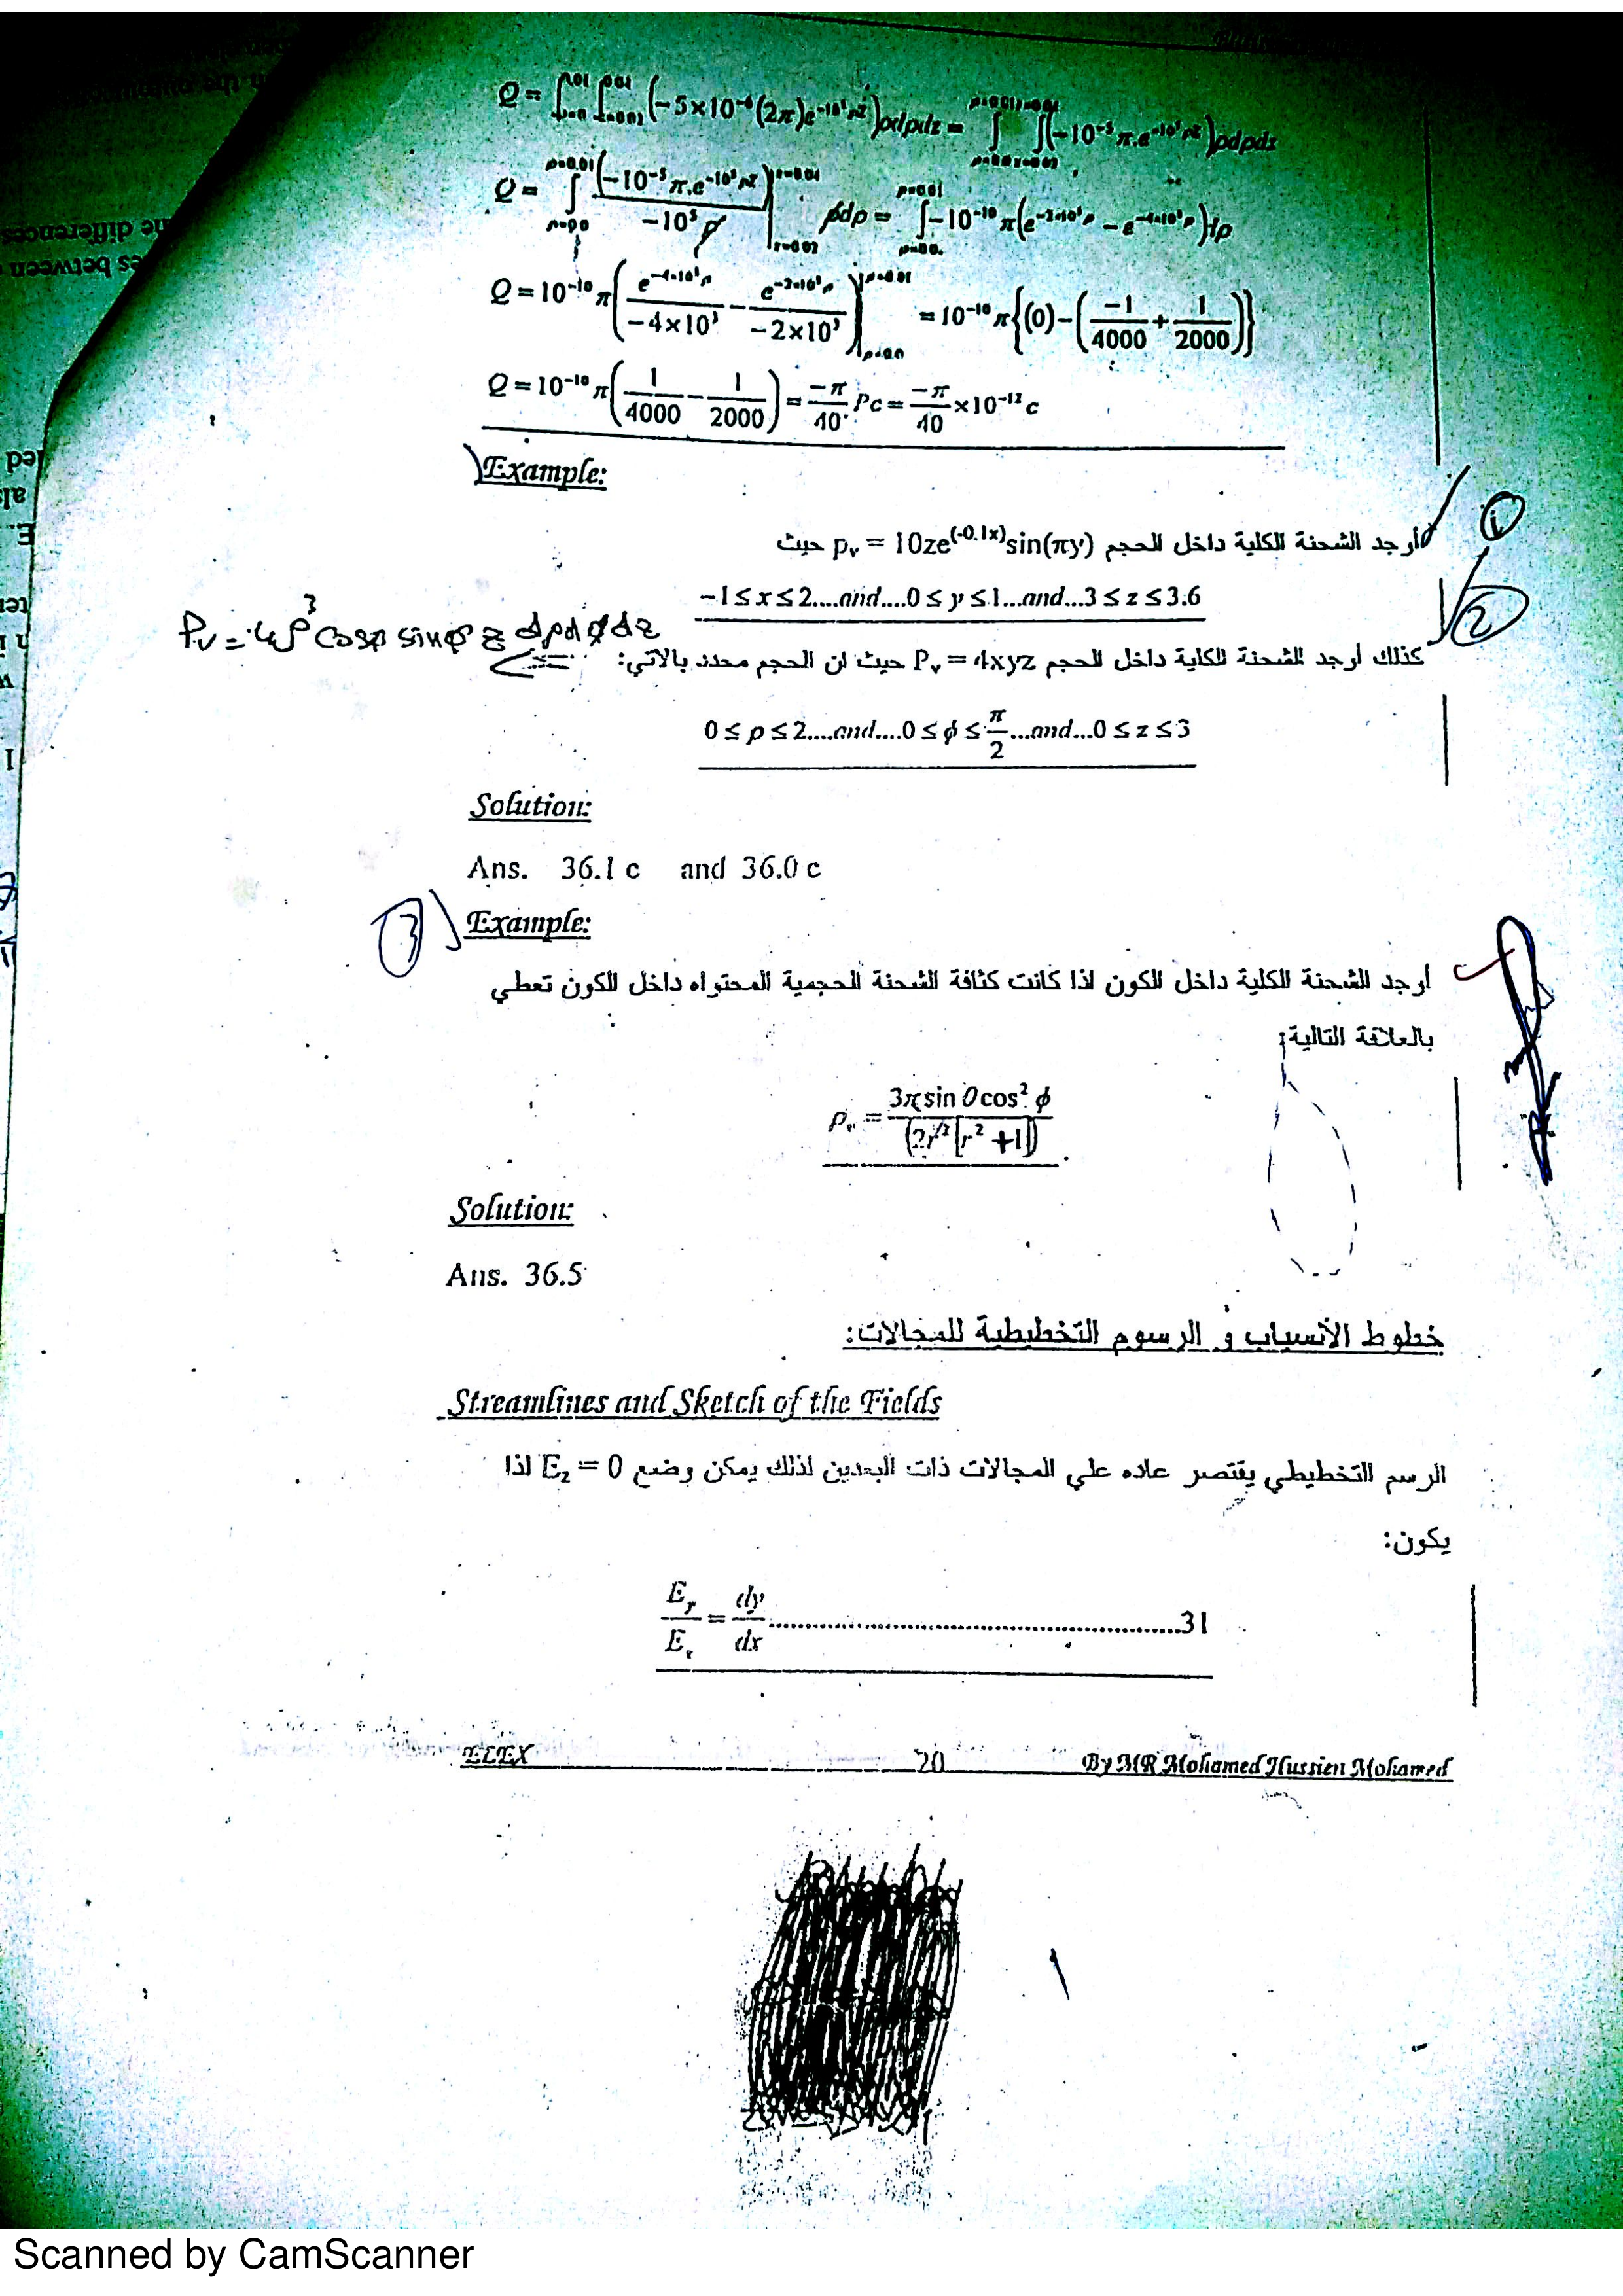 Q = ∫∫(-5×10⁻⁶(2π)e^(-10⁵ρz))ρdρdz = ∫∫(-10⁻⁵π.e^(-10⁵ρz))ρdρdz
Q = ∫ (-10⁻⁵π.e^(-10⁵ρz))/(-10⁵ρ) | ρdρ = ∫-10⁻¹⁰π(e^(-2×10³ρ) - e^(-4×10³ρ))dρ
Q = 10⁻¹⁰π(e^(-4×10³ρ)/(-4×10³) - e^(-2×10³ρ)/(-2×10³)) | = 10⁻¹⁰π{(0)-(-1/4000 + 1/2000)}
Q = 10⁻¹⁰π(1/4000 - 1/2000) = -π/40 Pc = -π/40 ×10⁻¹² c
Example:
①
أرجد الشحنة الكلية داخل الحجم pᵥ = 10ze^(-0.1x)sin(πy) حيث
-1 ≤ x ≤ 2....and....0 ≤ y ≤ 1...and...3 ≤ z ≤ 3.6
②
Pᵥ = 4ρ³ cosφ sinφ z dρdφdz
كذلك أرجد الشحنة الكلية داخل الحجم Pᵥ = 4xyz حيث ان الحجم محدد بالاتي:
0 ≤ ρ ≤ 2....and....0 ≤ φ ≤ π/2...and...0 ≤ z ≤ 3
Solution:
Ans. 36.1 c and 36.0 c
③
Example:
أرجد الشحنة الكلية داخل الكون اذا كانت كثافة الشحنة الحجمية المحتواه داخل الكون تعطي
بالعلاقة التالية:
ρᵥ = 3π sin θ cos² φ / (2r²[r² + 1])
Solution:
Ans. 36.5
خطوط الأنسياب و الرسوم التخطيطية للمجالات:
Streamlines and Sketch of the Fields
الرسم التخطيطي يقتصر عاده علي المجالات ذات البعدين لذلك يمكن وضع E_z = 0 لذا
يكون:
E_y/E_x = dy/dx ..................................................31
ELEX 20 By MR Mohamed Hussien Mohamed
Scanned by CamScanner